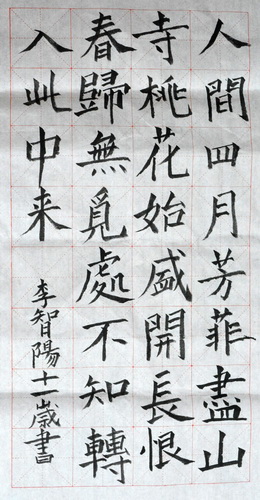 人間四月芳菲盡山
寺桃花始盛開長恨
春歸無覓處不知轉
入此中来
李智陽十一歲書